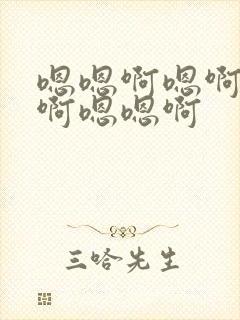 嗯嗯啊嗯啊
啊嗯嗯啊
三哈先生